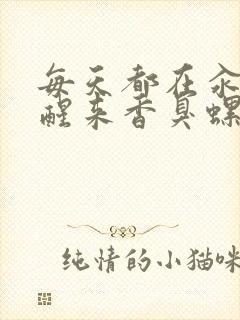 每天都在汆
醒来香臭螺
纯情的小猫咪